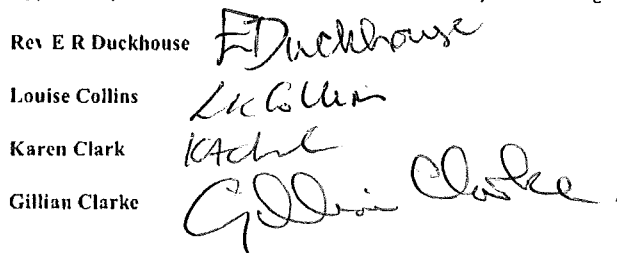 Rev E R Duckhouse EDuckhouse
Louise Collins LK Collins
Karen Clark
Gillian Clarke Gillian Clarke.